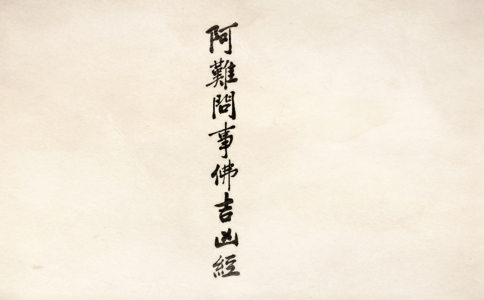 阿難問事佛吉凶經